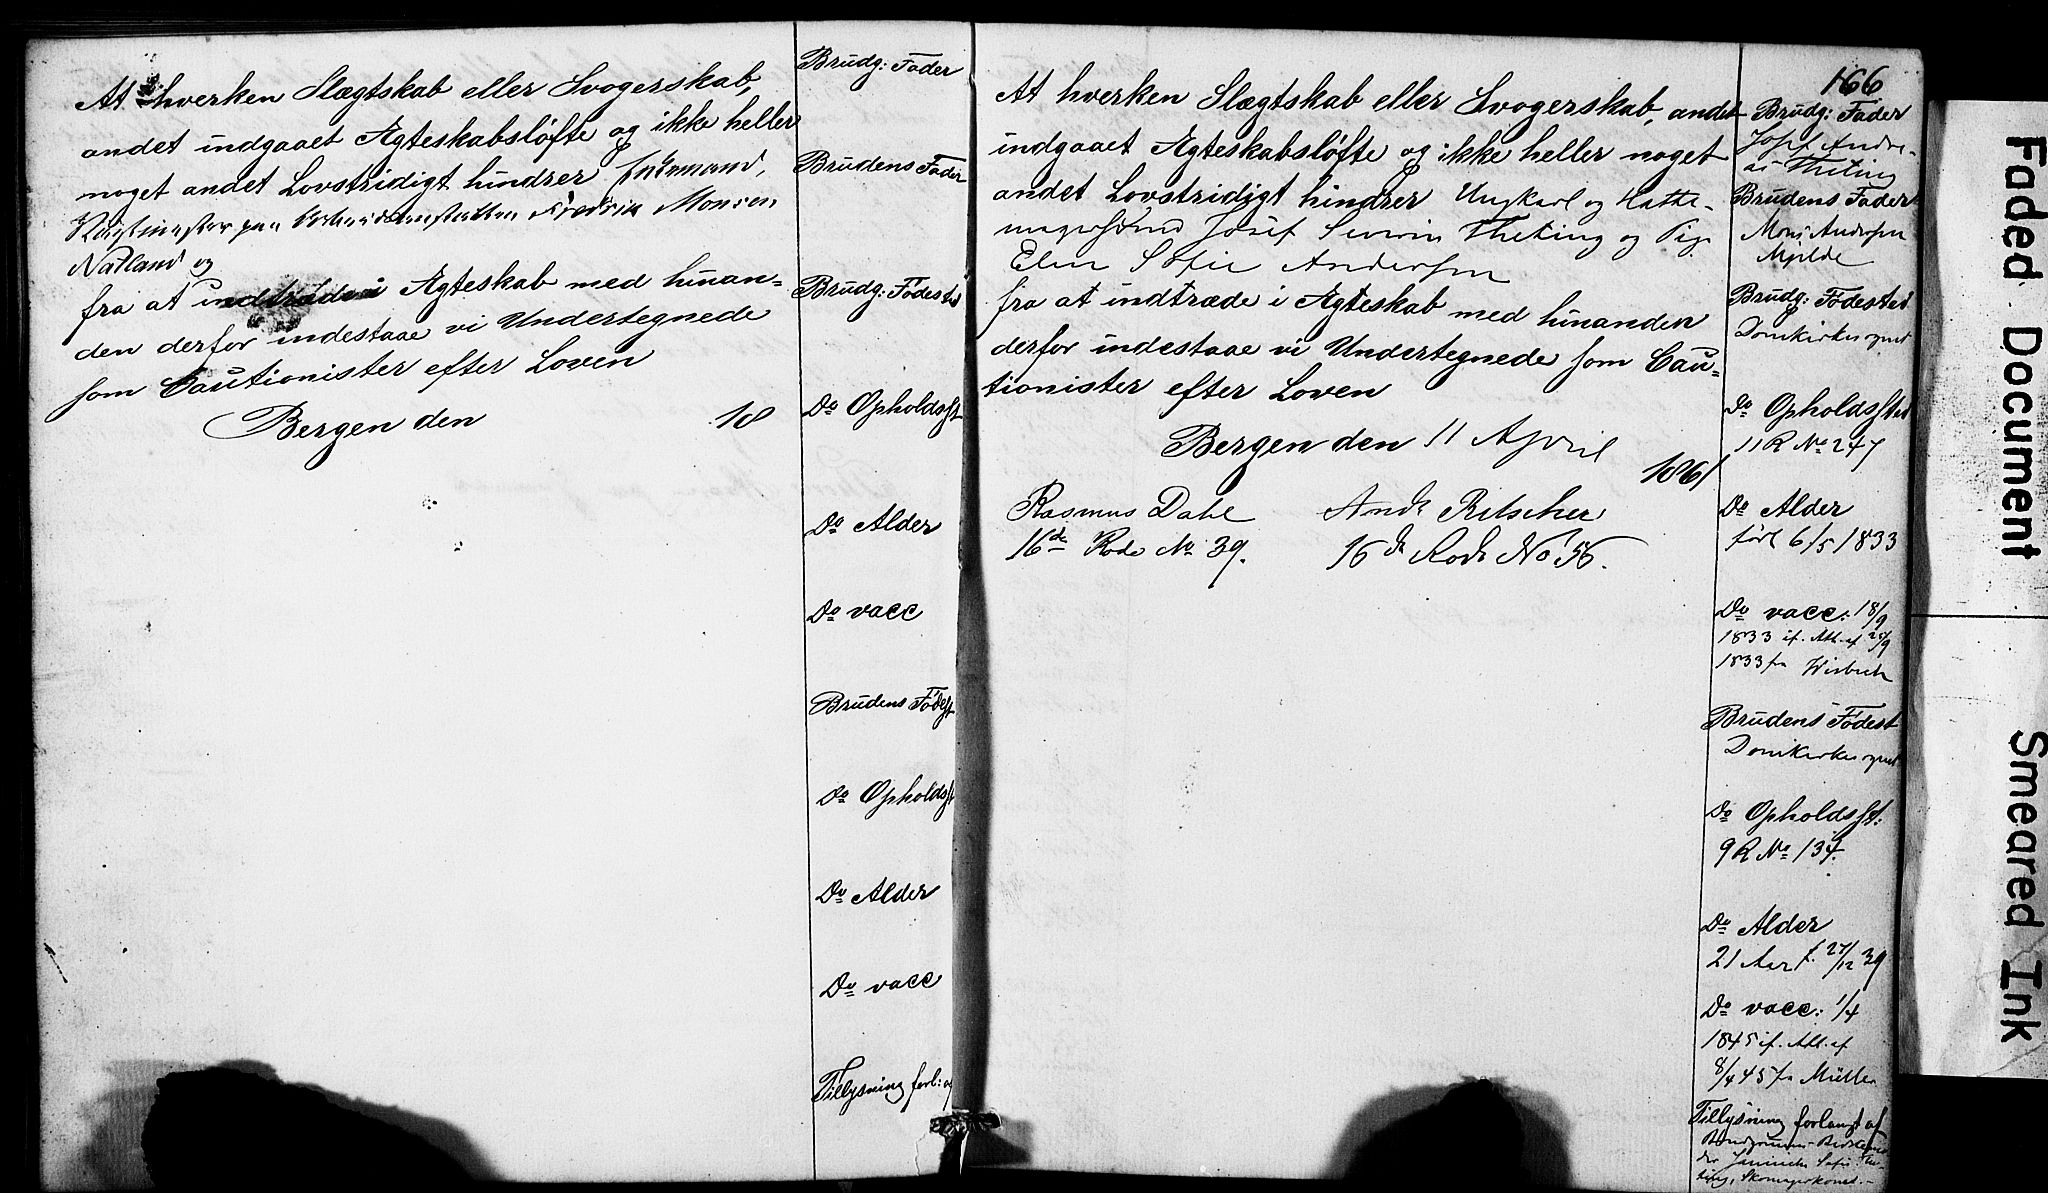 At hverken Slægtskab eller Svogerskab,
andet indgaaet Ægteskabsløfte og ikke heller
noget andet Lovstridigt hindrer Enkemand,
paa Fredrik Monsen
Natland og
fra at indtræde i Ægteskab med hinan=
den derfor indestaae vi Undertegnede
som Cautionister efter Loven
Bergen den 18
Brudg: Fader
Brudens Fader
Brudg: Fødested
Do Opholdsst
Do Alder
Do vacc
Brudens Fødest
Do Opholdsst
Do Alder
Do vacc
Tillysning forl: af
166
At hverken Slægtskab eller Svogerskab, andet
indgaaet Ægteskabsløfte og ikke heller noget
andet Lovstridigt hindrer Ungkarl og Hatte-
magersvend Josef Severin Theting og Pige
Elen Sofie Andersen
fra at indtræde i Ægteskab med hinanden
derfor indestaae vi Undertegnede som Cau=
tionister efter Loven
Bergen den 11 April
1861
Rasmus Dahl Andr Ritscher
16de Rode No 39. 16de Rode No 56.
Brudg: Fader
Josef Andre-
as Theting
Brudens Fader
Mons Andersen
Mjelde
Brudg: Fødested
Domkirkesognet
Do Opholdssted
11 R No 247
Do Alder
født 6/5 1833
Do vacc: 18/9
1833 if. Att. af 28/9
1833 fra Wisbech
Brudens Fødest
Domkirkesognet
Do Opholdsst:
9 R No 137.
Do Alder
21 Aar f. 27/12 39
Do vacc: 1/4
1845 if. Att. af
8/4 45 fra Müller
Tillysning forlangt af
Brudgommens
Sofie The-
ting,
Faded Document
Smeared Ink